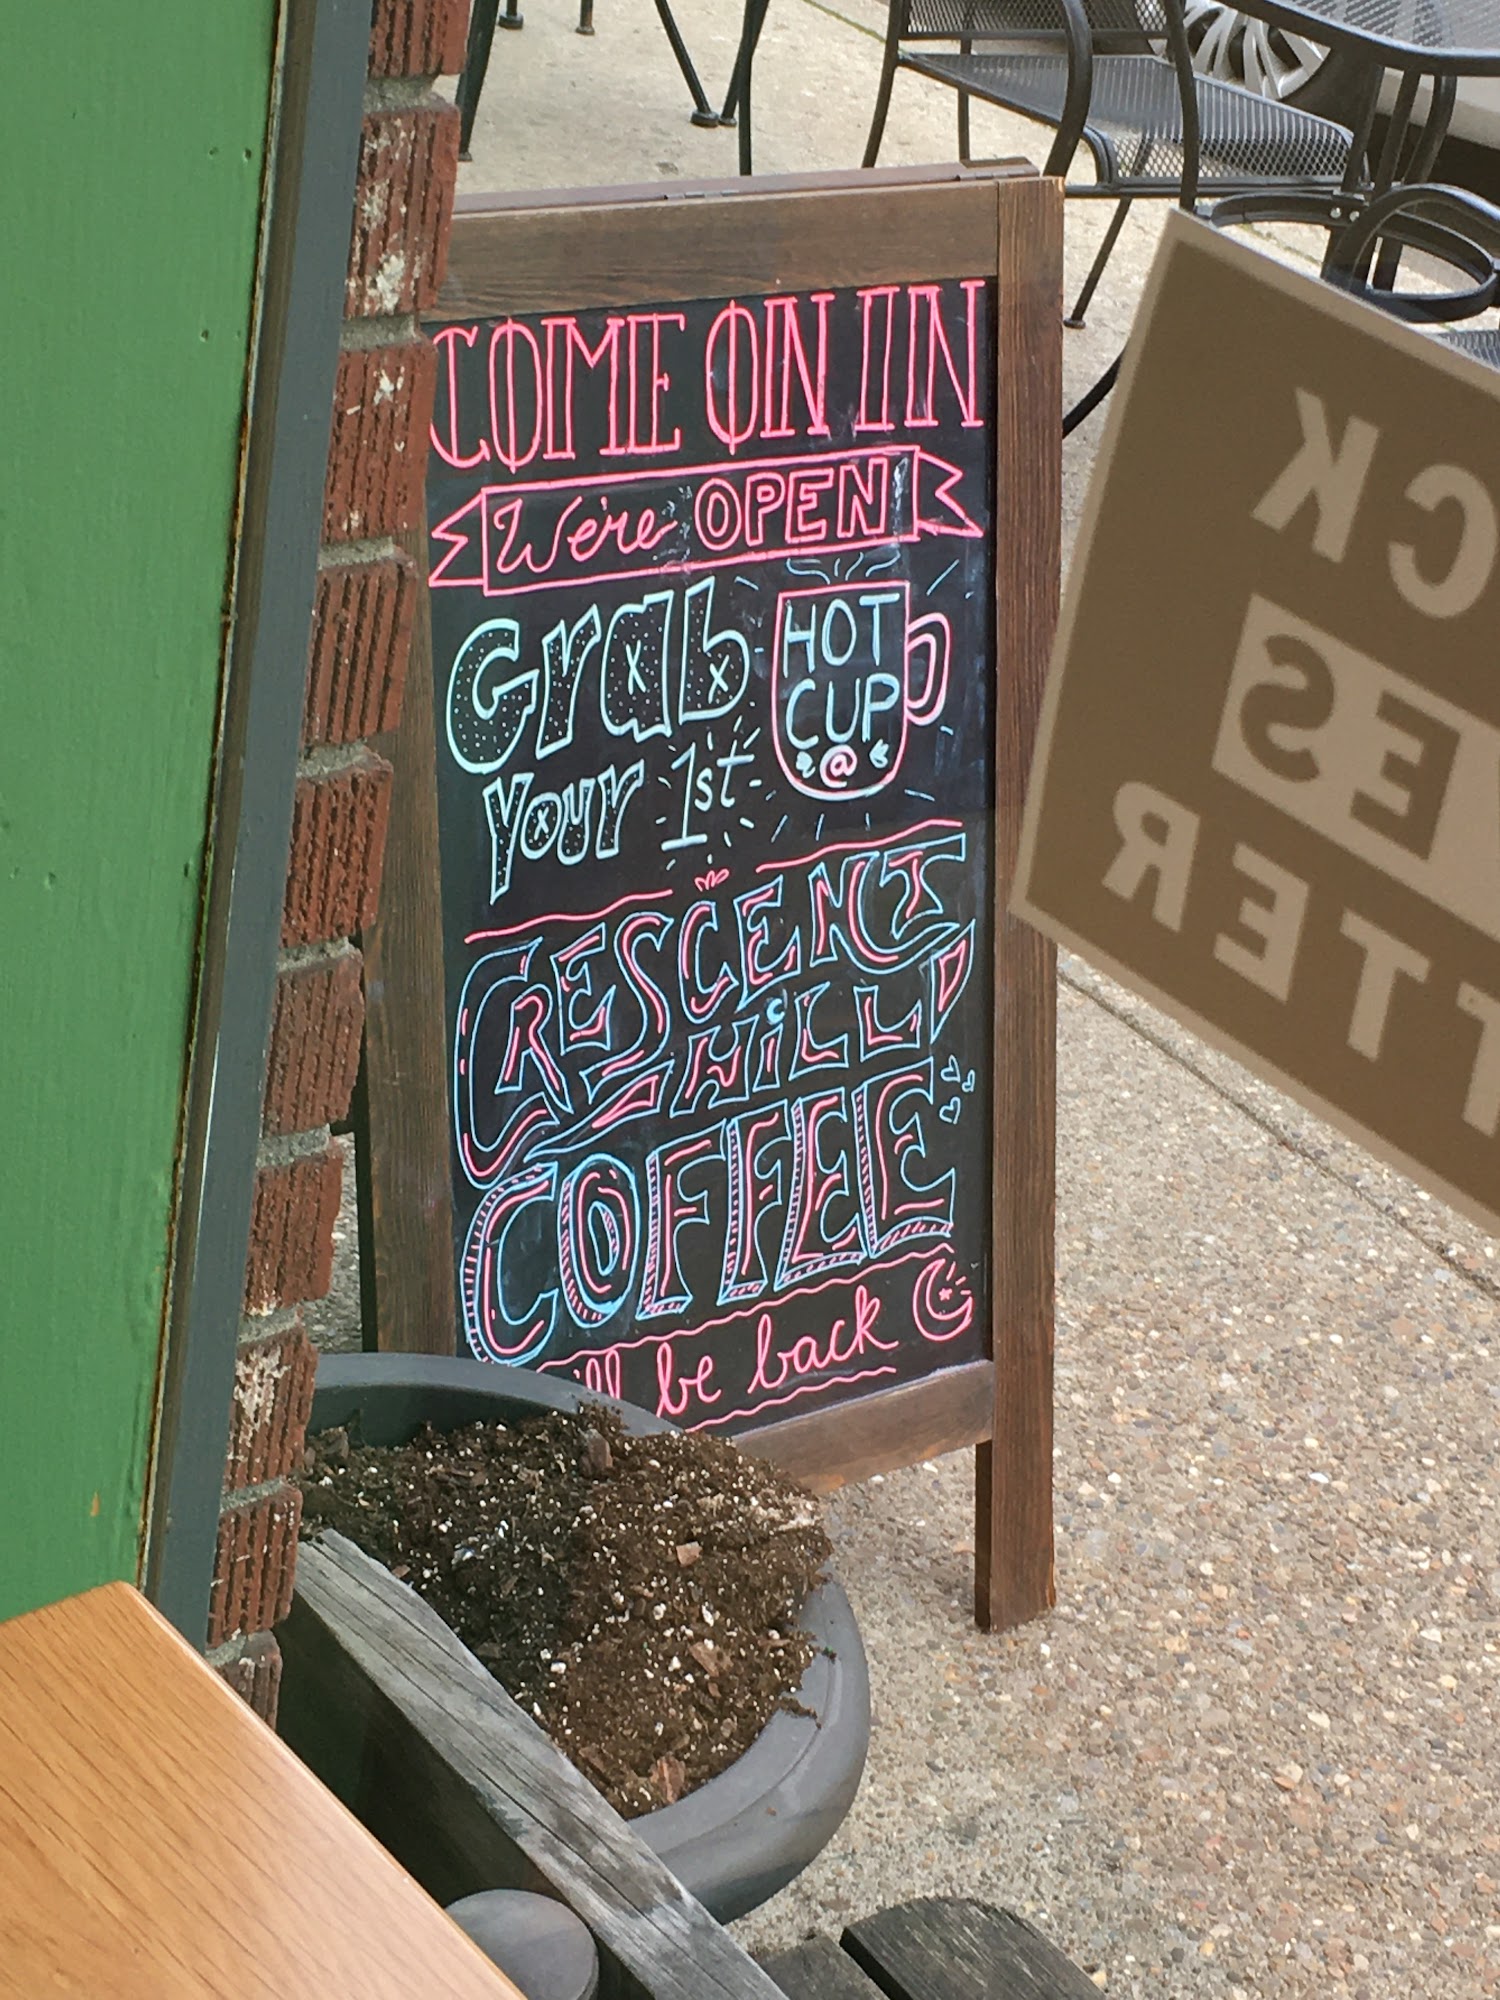 COME ON IN
We're OPEN
Grab
Your 1st
HOT
CUP
@
CRESCENT
HILL
COFFEE
be back
CK
ES
TTER